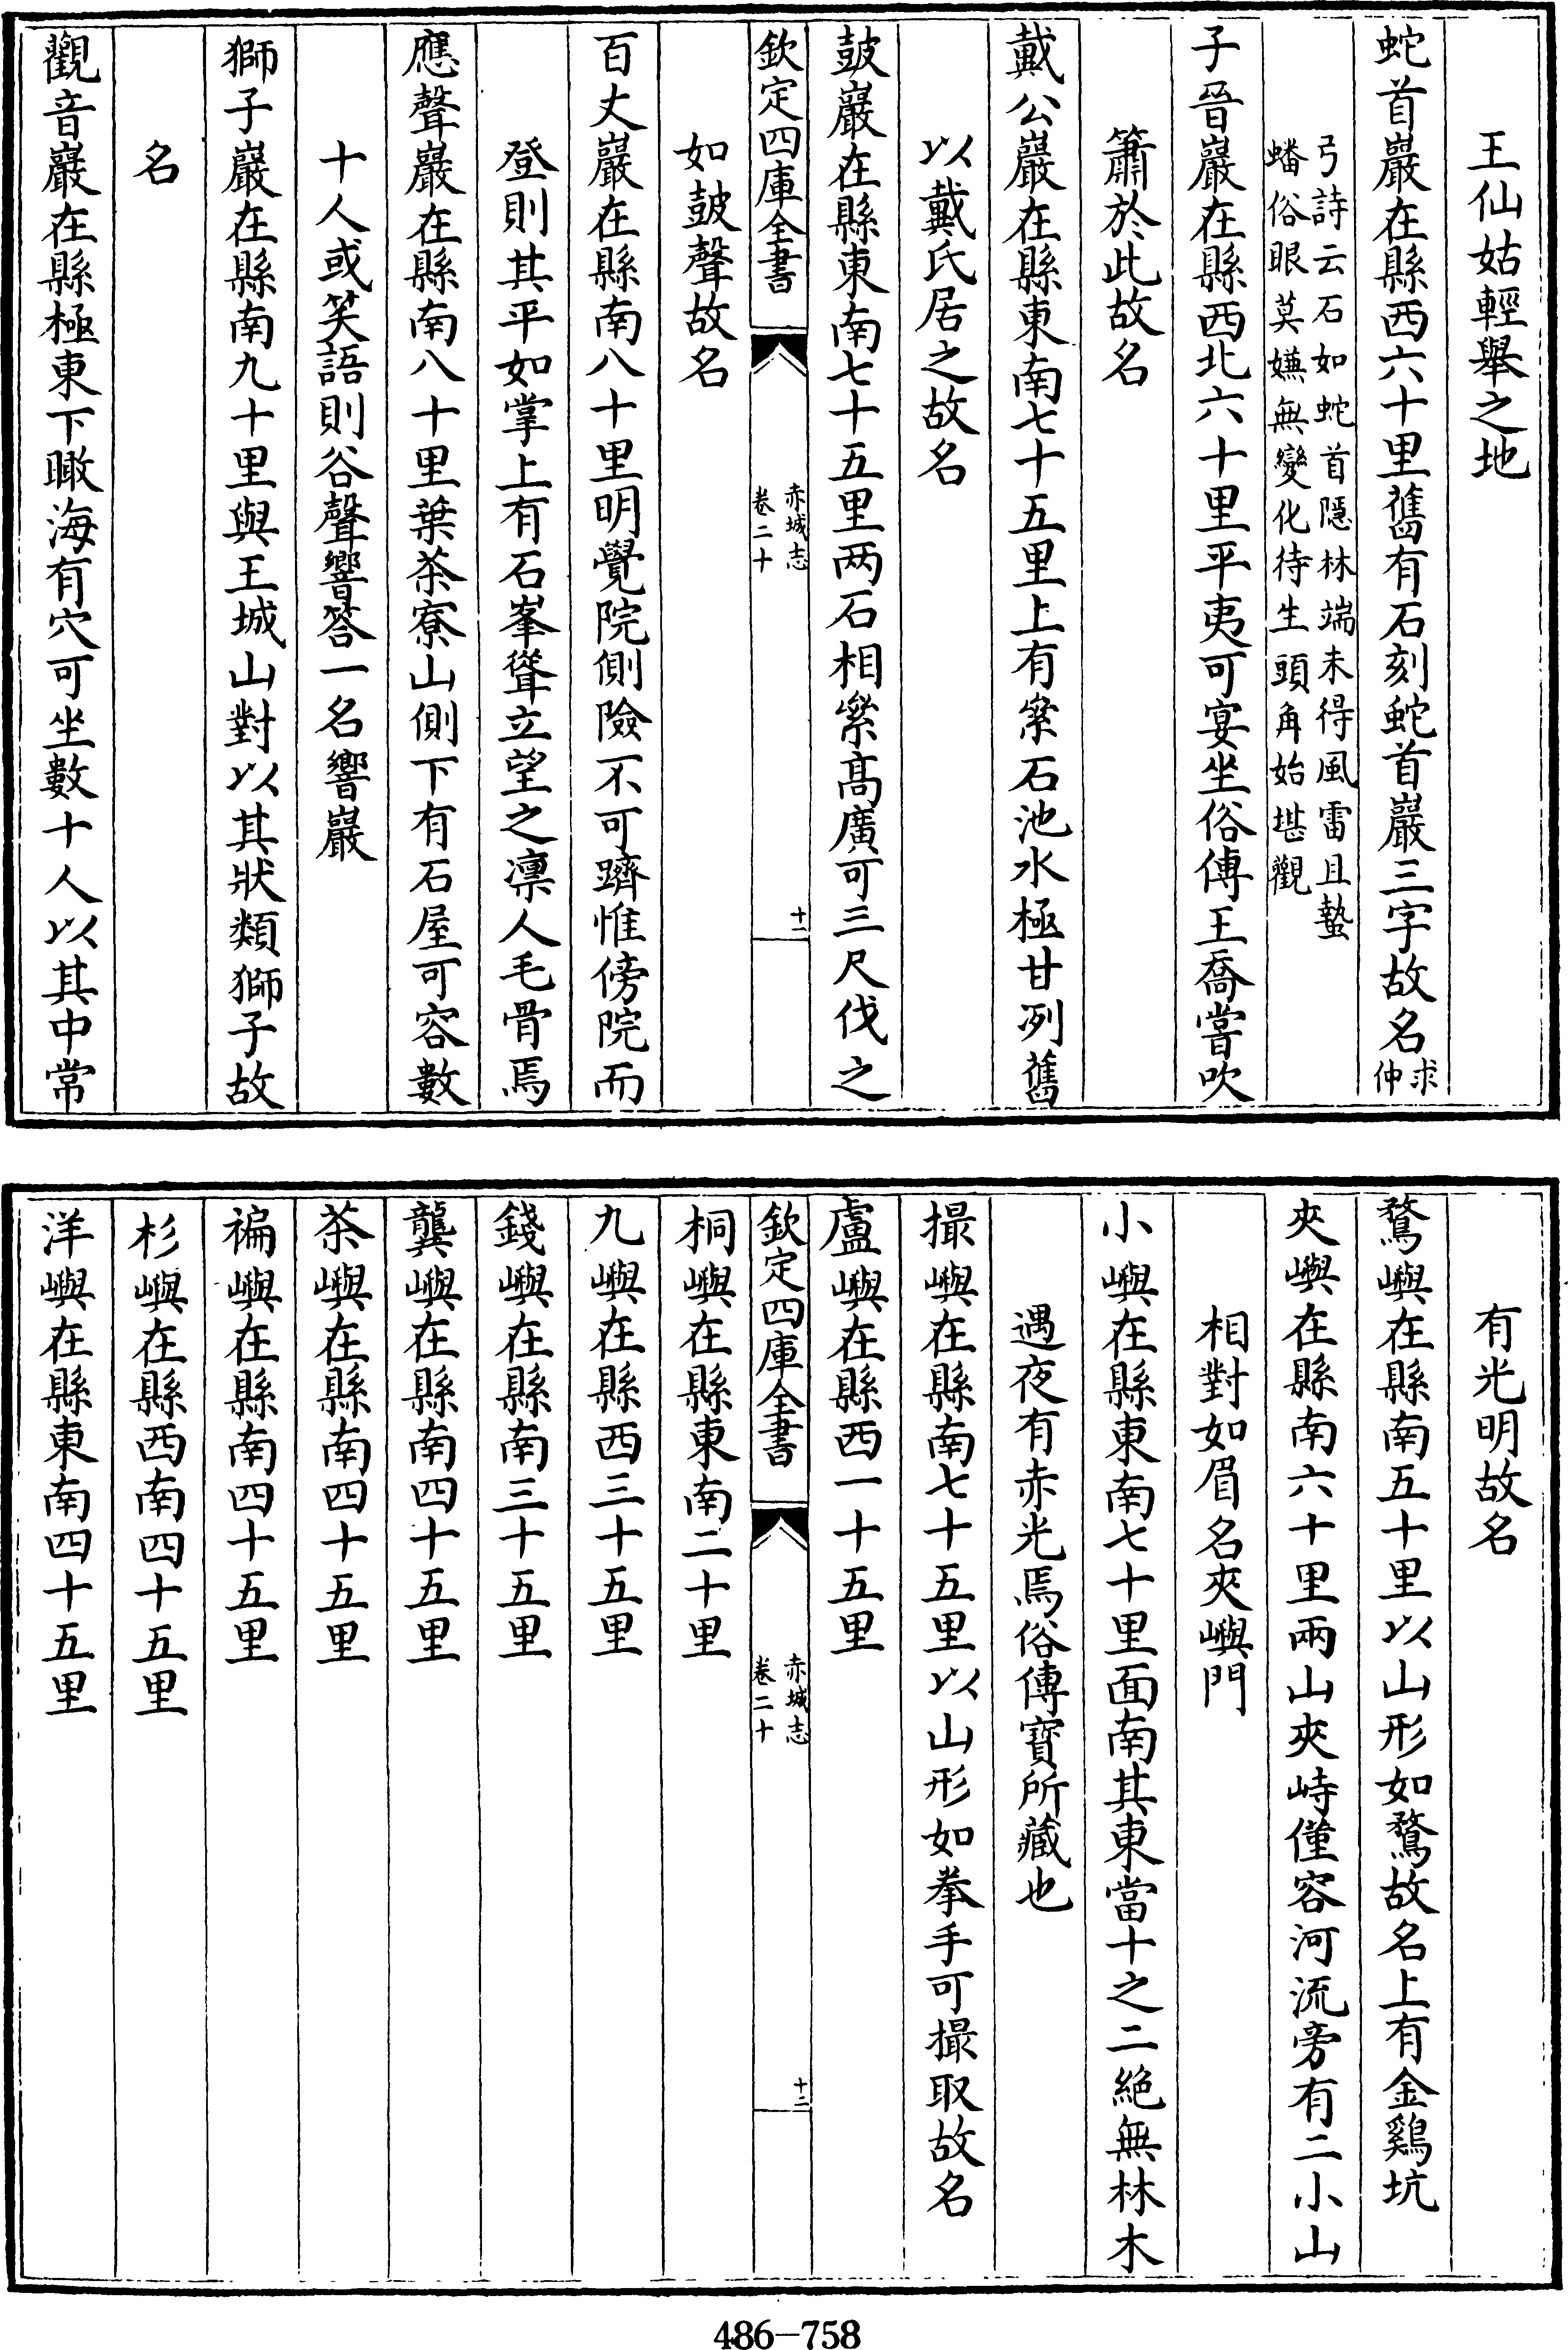 王仙姑輕舉之地
蛇首巖在縣西六十里舊有石刻蛇首巖三字故名求仲
弓詩云石如蛇首隱林端未得風雷且蟄
蟠俗眼莫嫌無變化待生頭角始堪觀
子晉巖在縣西北六十里平夷可宴坐俗傳王喬嘗吹
簫於此故名
戴公巖在縣東南七十五里上有紫石池水極甘冽舊
以戴氏居之故名
鼓巖在縣東南七十五里两石相絫髙廣可三尺伐之
欽定四庫全書
赤城志
卷二十
十一
如鼓聲故名
百丈巖在縣南八十里明覺院側險不可躋惟傍院而
登則其平如掌上有石峯聳立望之凛人毛骨焉
應聲巖在縣南八十里葉茶寮山側下有石屋可容數
十人或笑語則谷聲響答一名響巖
獅子巖在縣南九十里與王城山對以其狀類獅子故
名
觀音巖在縣極東下瞰海有穴可坐數十人以其中常
有光明故名
鶩嶼在縣南五十里以山形如鶩故名上有金鷄坑
夾嶼在縣南六十里兩山夾峙僅容河流旁有二小山
相對如眉名夾嶼門
小嶼在縣東南七十里面南其東當十之二絶無林木
遇夜有赤光焉俗傳寶所藏也
撮嶼在縣南七十五里以山形如拳手可撮取故名
盧嶼在縣西一十五里
欽定四庫全書
赤城志
卷二十
十二
桐嶼在縣東南二十里
九嶼在縣西三十五里
錢嶼在縣南三十五里
龔嶼在縣南四十五里
茶嶼在縣南四十五里
褊嶼在縣南四十五里
杉嶼在縣西南四十五里
洋嶼在縣東南四十五里
486-758